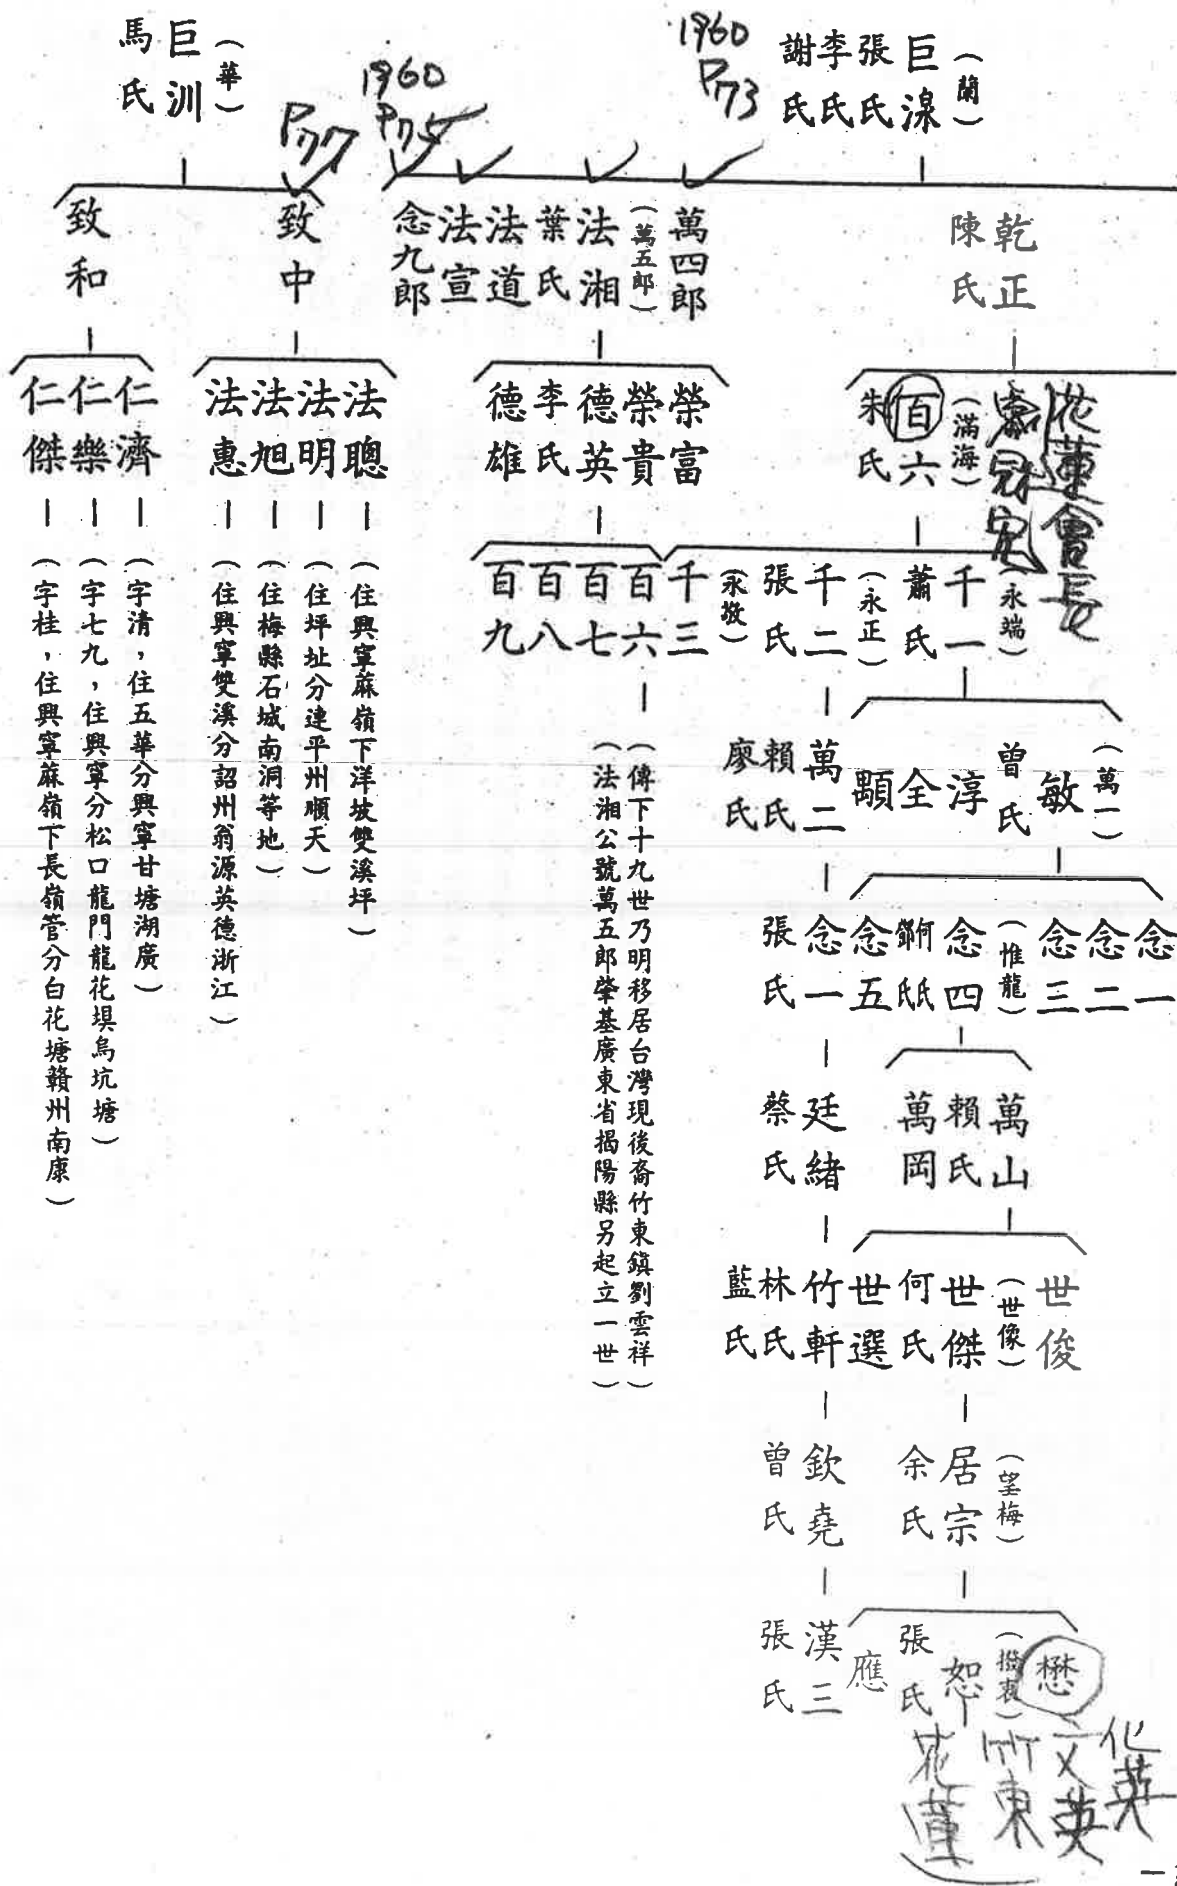 （蘭）
巨湶
張氏
李氏
謝氏
1960
P73
（華）
巨汌
馬氏
1960
P75
P77
乾正
陳氏
萬四郎
（萬五郎）
法湘
葉氏
法道
法宣
念九郎
致中
致和
花蓮會長
（滿海）
百六
朱氏
榮富
榮貴
德英
李氏
德雄
法聰
法明
法旭
法惠
仁濟
仁樂
仁傑
（永端）
千一
蕭氏
（永正）
千二
張氏
（永敬）
千三
百六
百七
百八
百九
（住興寧蔴嶺下洋坡雙溪坪）
（住坪址分連平州順天）
（住梅縣石城南洞等地）
（住興寧雙溪分詔州翁源英德浙江）
（字清，住五華分興寧甘塘湖廣）
（字七九，住興寧分松口龍門龍花塓烏坑塘）
（字桂，住興寧蔴嶺下長嶺管分白花塘贛州南康）
（萬一）
敏
曾氏
淳
全
顒
萬二
賴氏
廖氏
（傳下十九世乃明移居台灣現後裔竹東鎮劉雲祥）
（法湘公號萬五郎肇基廣東省揭陽縣另起立一世）
念一
念二
念三
（惟龍）
念四
何氏
鄧氏
念五
念一
張氏
萬山
賴氏
萬岡
廷緒
蔡氏
世俊
（世像）
世傑
何氏
世選
竹軒
林氏
藍氏
（望梅）
居宗
余氏
欽堯
曾氏
懋
（撥衷）
恕
張氏
應
漢三
張氏
化英
文英
竹東
花蓮
一